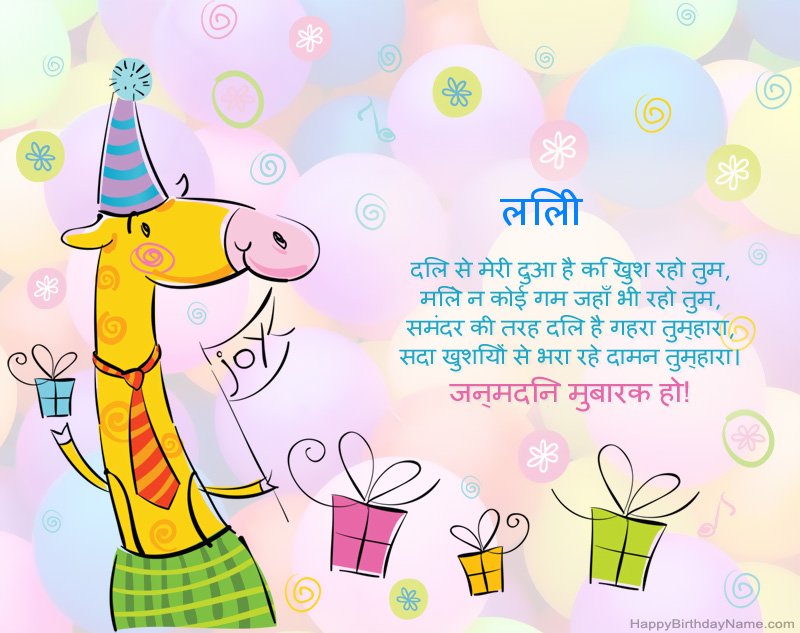 लिली
दिल से मेरी दुआ है कि खुश रहो तुम,
मिले न कोई गम जहाँ भी रहो तुम,
समंदर की तरह दिल है गहरा तुम्हारा,
सदा खुशियों से भरा रहे दामन तुम्हारा।
जन्मदिन मुबारक हो!
joy
HappyBirthdayName.com